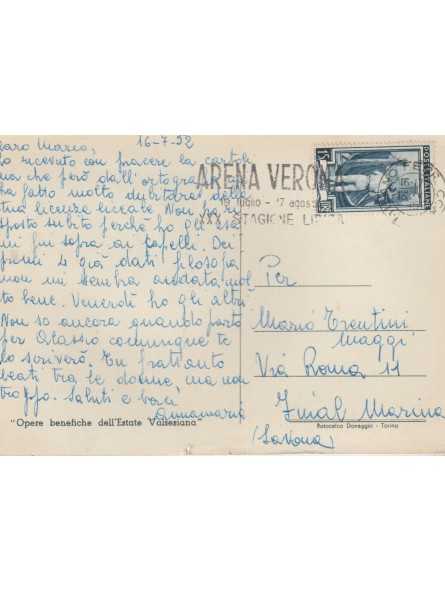 16-7-52
Caro Mario,
ho ricevuto con piacere la cartoli
na che però dall'ortografia mi
ha fatto molto dubitare della
tua licenza liceale. Non ti ri
sposto subito perché ho gli esa
mi fin sopra ai capelli. Dei
primi 4 già dati filosofia
non mi sembra andata mol
to bene. Venerdì ho gli altri
Non so ancora quando parto
per Alassio comunque te
lo scriverò. Tu frattanto
beati tra le donne, ma non
troppo. Saluti e baci
Annamaria
"Opere benefiche dell'Estate Valsesiana"
ARENA VERONA
luglio - 17 agosto
XXX STAGIONE LIRICA
POSTE ITALIANE
Per
Mario Trentini
Maggi
Via Roma 11
Final Marina
(Savona)
Rotocalco Dagnino - Torino